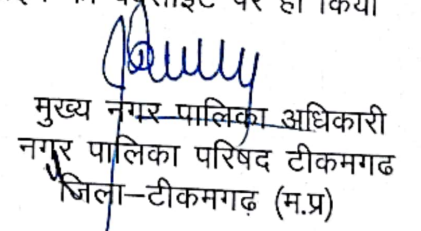 पर ही किया
मुख्य नगर पालिका अधिकारी
नगर पालिका परिषद टीकमगढ
जिला–टीकमगढ़ (म.प्र)